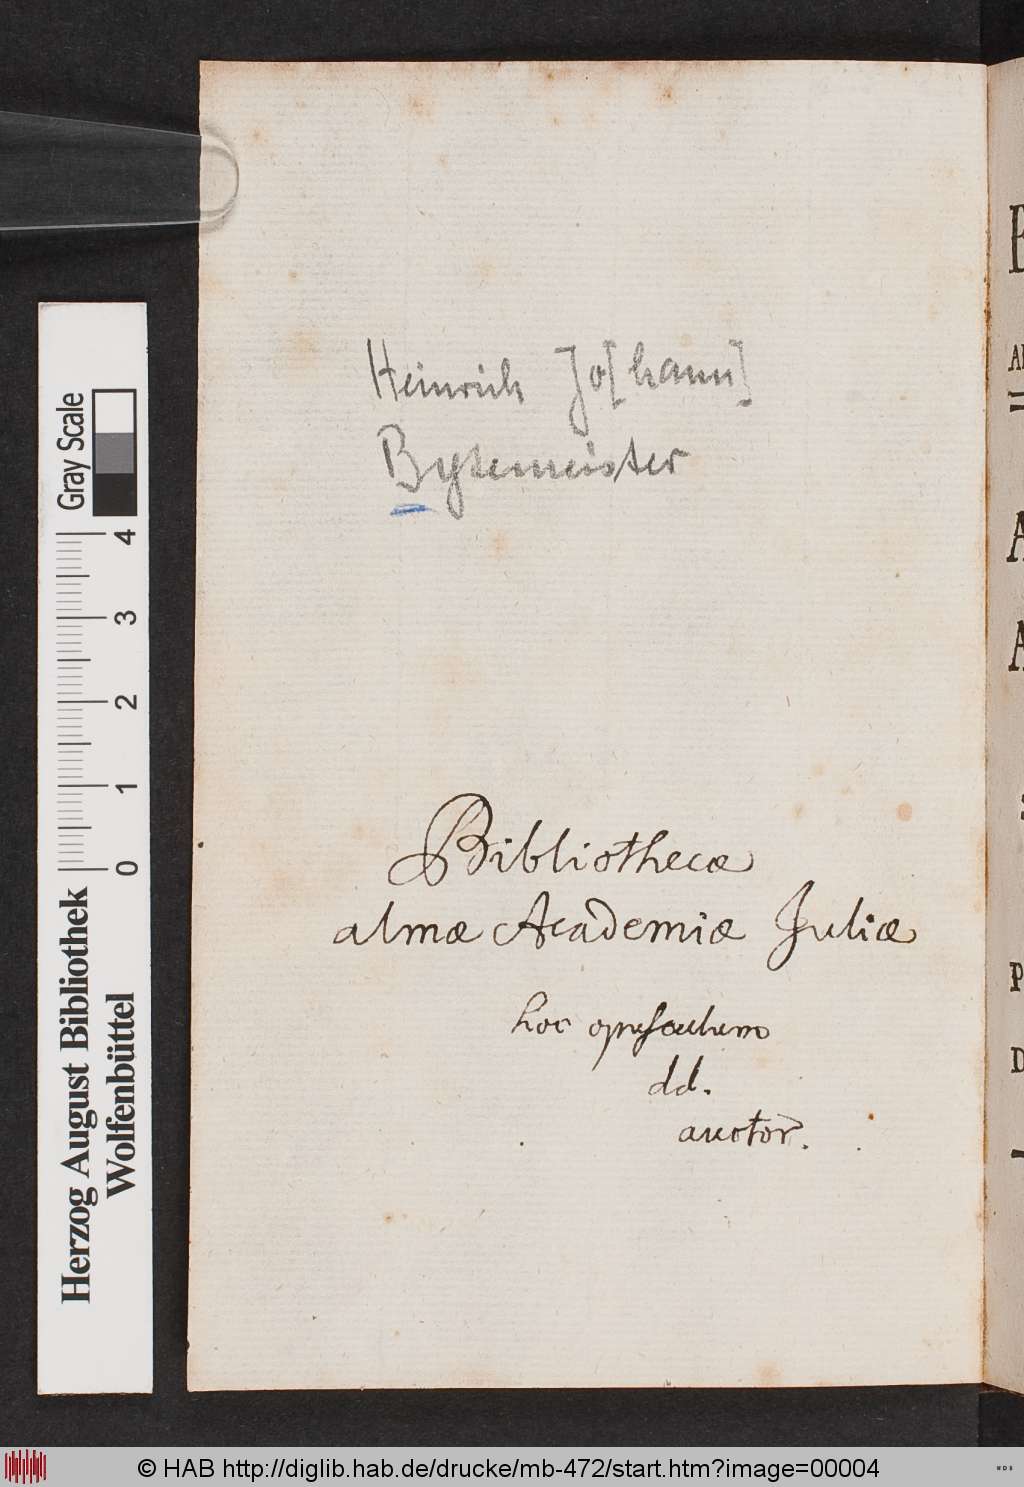 Heinrich Jo[hann]
Bytemeister
Bibliothecæ
almæ Academiæ Juliæ
hoc opusculum
dd.
auctor.
Gray Scale
4
3
2
1
0
Herzog August Bibliothek
Wolfenbüttel
© HAB http://diglib.hab.de/drucke/mb-472/start.htm?image=00004